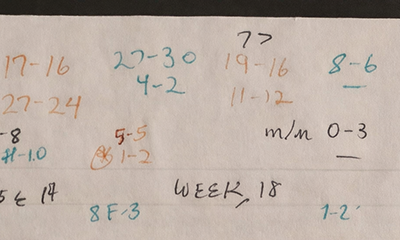 77
17-16 27-30 19-16 8-6
27-24 4-2 11-12
-8 5-5 m/m 0-3
1-2
WEEK, 18
8F-3 1-2